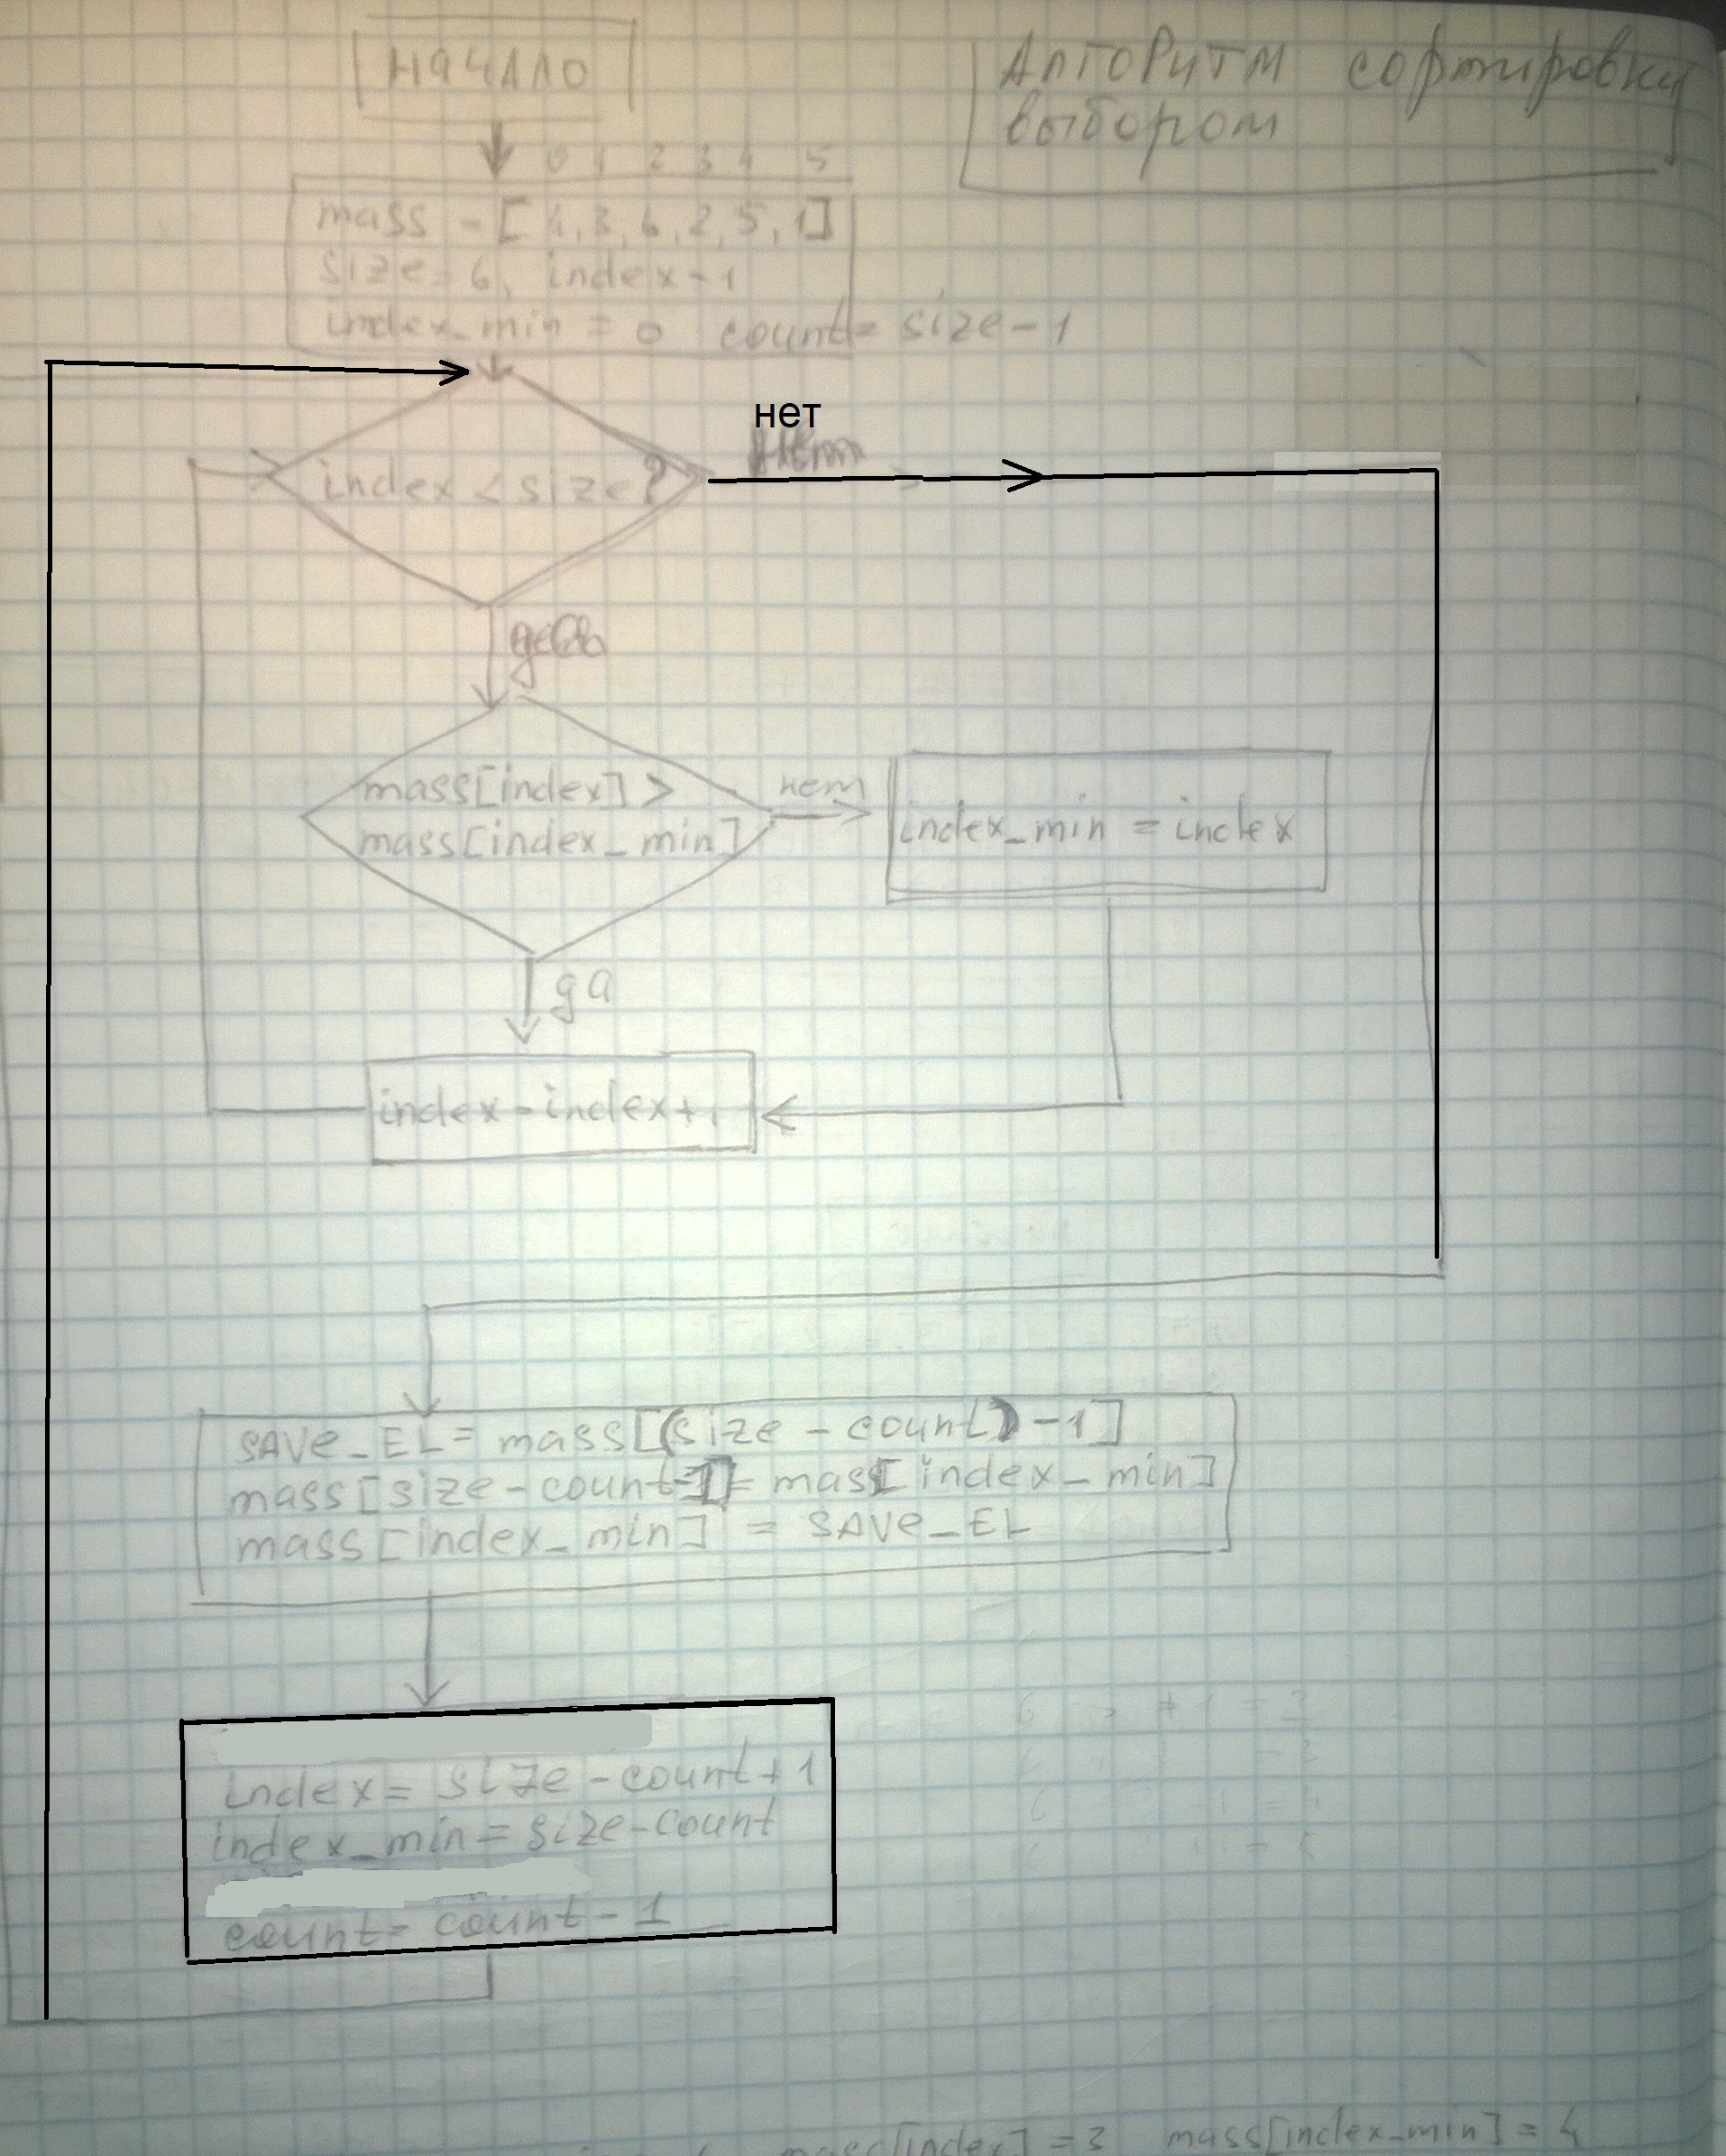 НАЧАЛО
Алгоритм сортировки
выбором
0 1 2 3 4 5
mass = [4,3,6,2,5,1]
size=6, index=1
index_min = 0 count= size-1
нет
index < size?
mass[index] >
mass[index_min]
нет
index_min = index
да
index=index+1
SAVE_EL= mass[(size - count)-1]
mass[size-count-1]= mass[index_min]
mass[index_min] = SAVE_EL
index= size-count+1
index_min=size-count
count= count-1
mass[index] =3 mass[index_min] = 4